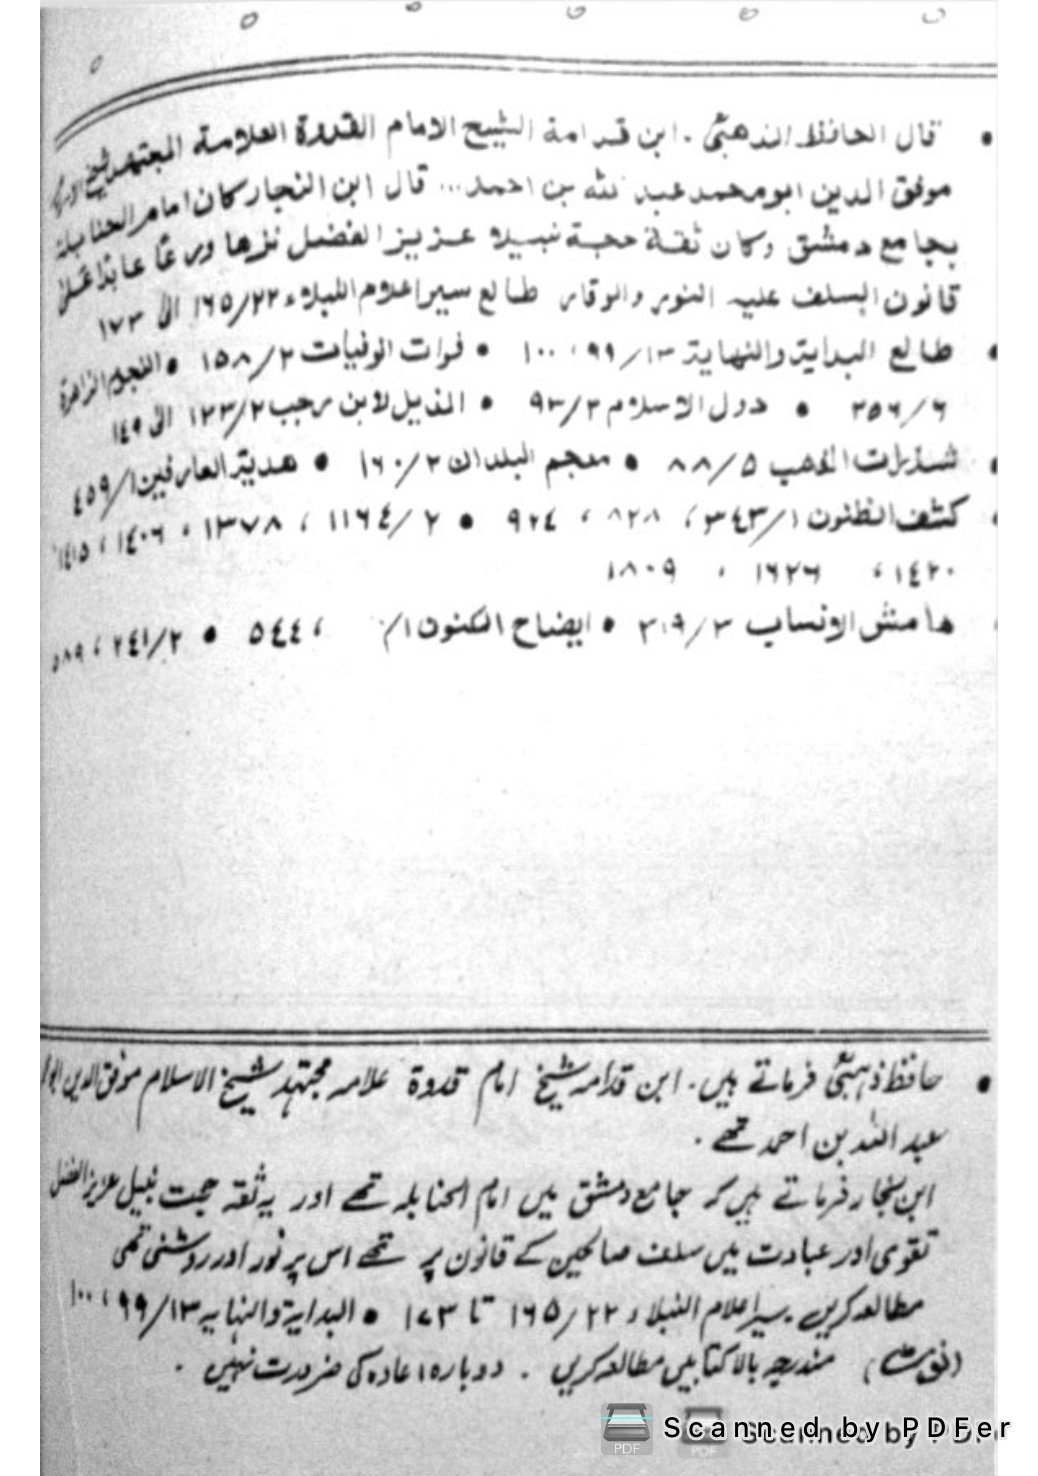 • قال الحافظ الذهبيؒ . ابن قدامة الشيخ الامام القدوة العلامة المجتهد شيخ
موفق الدين ابو محمد عبد الله بن احمد... قال ابن النجار كان امام الحنابلة
بجامع دمشق وكان ثقة حجة نبيلا عزيز الفضل نزها ورعًا عابدًا على
قانون السلف عليه النور والوقار طالع سير اعلام النبلاء ٢٢/١٦٥ الى ١٧٣
• طالع البداية والنهاية ١٣/٩٩، ١٠٠ • فوات الوفيات ٢/١٥٨ • النجوم الزاهرة
٦/٢٥٦ • دول الاسلام ٢/٩٣ • الذيل لابن رجب ٢/١٣٣ الى ١٤٩
• شذرات الذهب ٥/٨٨ • معجم البلدان ٢/١٦٠ • هدية العارفين ١/٤٥٩
• كشف الظنون ١/٣٤٣، ٨٢٨، ٩٢٤ • ٢/١١٦٤، ١٣٧٨، ١٤٠٦، ١٤١٥
١٤٢٠، ١٦٢٦، ١٨٠٩
• هامش الانساب ٣/٣١٩ • ايضاح المكنون ١/ ، ٥٤٤ • ٢/٢٤١، ٥٨٩
• حافظ ذہبیؒ فرماتے ہیں۔ ابن قدامہ شیخ امام قدوة علامہ مجتہد شیخ الاسلام موفق الدین
عبد اللہ بن احمد تھے۔
ابن نجار فرماتے ہیں کہ جامع دمشق میں امام الحنابلہ تھے اور یہ ثقہ حجت نبیل عزیز الفضل
تقوی اور عبادت میں سلف صالحین کے قانون پر تھے اس پر نور اور روشنی تھی
مطالعہ کریں سیر اعلام النبلاء ٢٢/١٦٥ تا ١٧٣ • البدایة والنہایہ ١٣/٩٩، ١٠٠
(نوٹ) مندرجہ بالا کتابیں مطالعہ کریں۔ دوبارہ اعادہ کی ضرورت نہیں۔
PDF Scanned by PDFer
PDF Scanned by